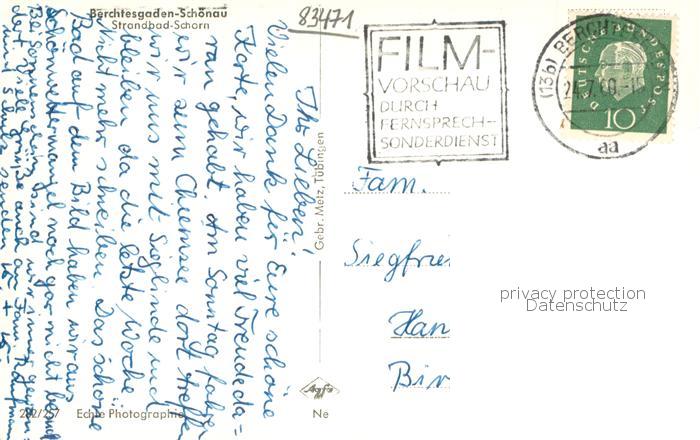 Berchtesgaden-Schönau
Strandbad-Schorn
83471
FILM-
VORSCHAU
DURCH
FERNSPRECH-
SONDERDIENST
(13b) BERCH
DEUTSCHE BUNDESPOST
10
aa
Ihr Lieben!
Vielen Dank für Eure schöne
Karte, wir haben viel Freude da=
ran gehabt. Am Sonntag fahren
wir zum Chiemsee dort treffen
wir uns mit Sieglinde und
bleiben da die letzte Woche
Nicht mehr schreiben Das schöne
Bad auf dem Bild haben wir aus
Schönwettermangel noch gar nicht
Sonnenschein sind wir immer
Grüsse auch an Fam. Kaufmann
senden
Gebr. Metz, Tübingen
Fam.
Siegfrie
Han
Bir
privacy protection
Datenschutz
Agfa
282/257 Echte Photographie
Ne